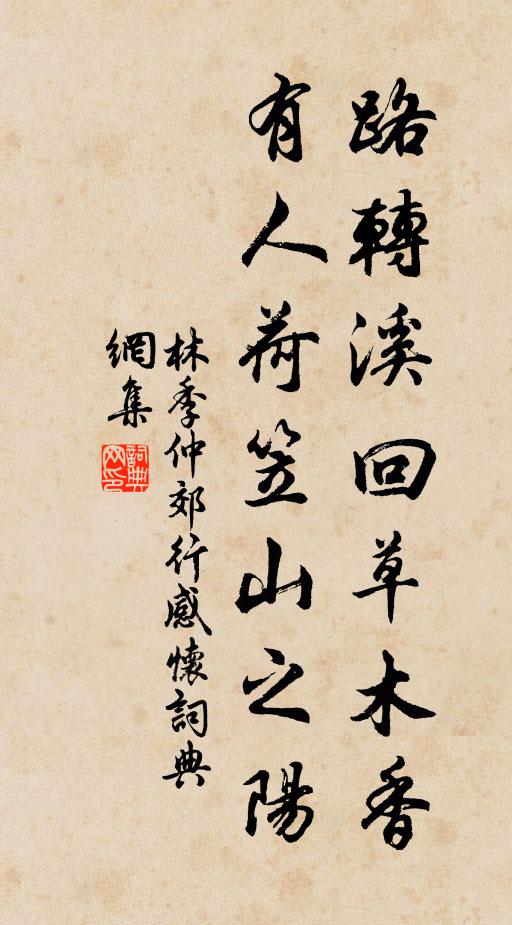 路轉溪回草木香
有人荷笠山之陽
林季仲郊行感懷詞典
網集
詞典
网印